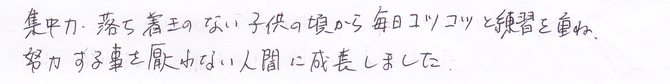 集中力・落ち着きのない子供の頃から毎日コツコツと練習を重ね、
努力する事を厭わない人間に成長しました.